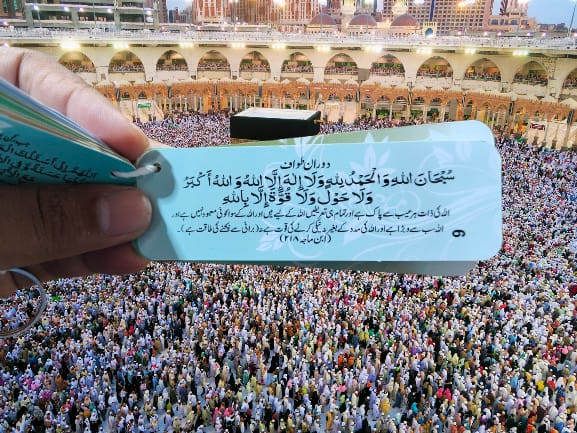 دوران طواف
سُبْحَانَ اللهِ وَالْحَمْدُ لِلّٰهِ وَلَا إِلٰهَ إِلَّا اللهُ وَاللهُ أَكْبَرُ
وَلَا حَوْلَ وَلَا قُوَّةَ إِلَّا بِاللهِ
اللہ کی ذات ہر عیب سے پاک ہے اور تمام ہی تعریفیں اللہ کے لیے ہیں اور اللہ کے سوا کوئی معبود نہیں ہے اور
اللہ سب سے بڑا ہے اور اللہ کی مدد کے بغیر نہ نیکی کرنے کی قوت ہے نہ (برائی سے بچنے کی طاقت ہے)۔
(ابن ماجہ ۲۱۸)
9